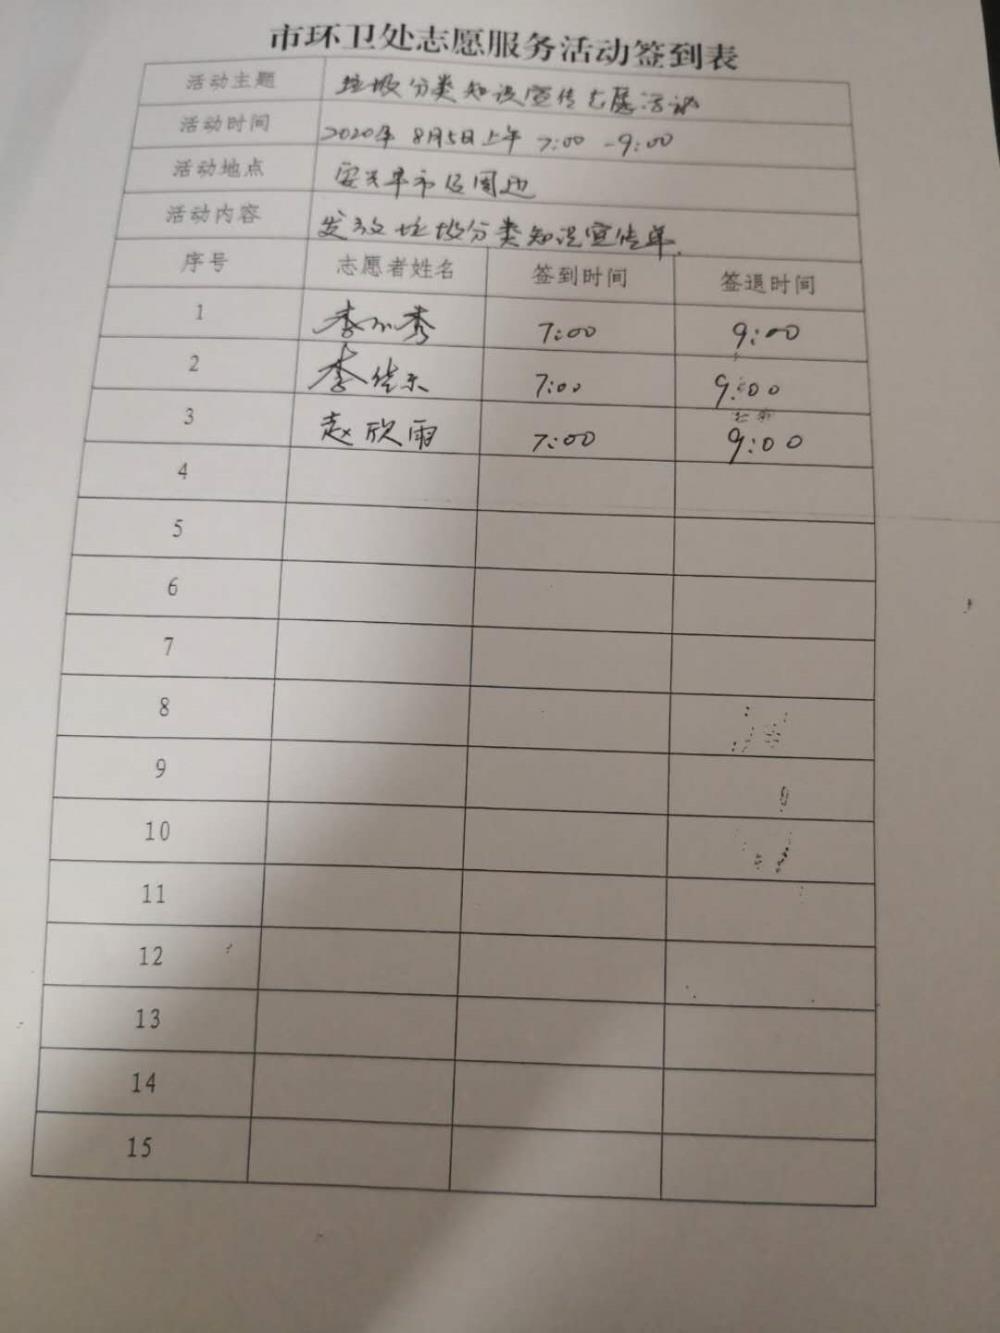 市环卫处志愿服务活动签到表
活动主题 垃圾分类知识宣传志愿活动
活动时间 2020年8月5日上午 7:00-9:00
活动地点 早市及周边
活动内容 发放垃圾分类知识宣传单.
序号 志愿者姓名 签到时间 签退时间
1 李小秀 7:00 9:00
2 李佳东 7:00 9:00
3 赵欣雨 7:00 9:00
4
5
6
7
8
9
10
11
12
13
14
15